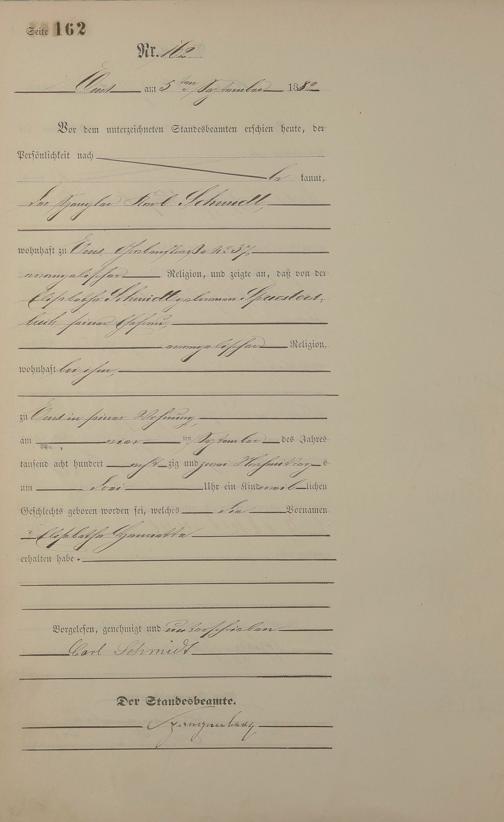 Seite 162
Nr. 162
Ems am 5ten September 1882
Vor dem unterzeichneten Standesbeamten erschien heute, der
Persönlichkeit nach
be kannt,
der Karl Schmidt,
wohnhaft zu Ems No 37,
evangelischer Religion, und zeigte an, daß von der
Elisabetha Schmidt geborenen
seiner Ehefrau,
evangelischer Religion,
wohnhaft bei ihm,
zu Ems in seiner Wohnung
am September des Jahres
tausend acht hundert acht zig und zwei Nachmittags
um drei Uhr ein Kind weiblichen
Geschlechts geboren worden sei, welches die Vornamen
Elisabetha Henriette
erhalten habe.
Vorgelesen, genehmigt und unterschrieben
Carl Schmidt
Der Standesbeamte.